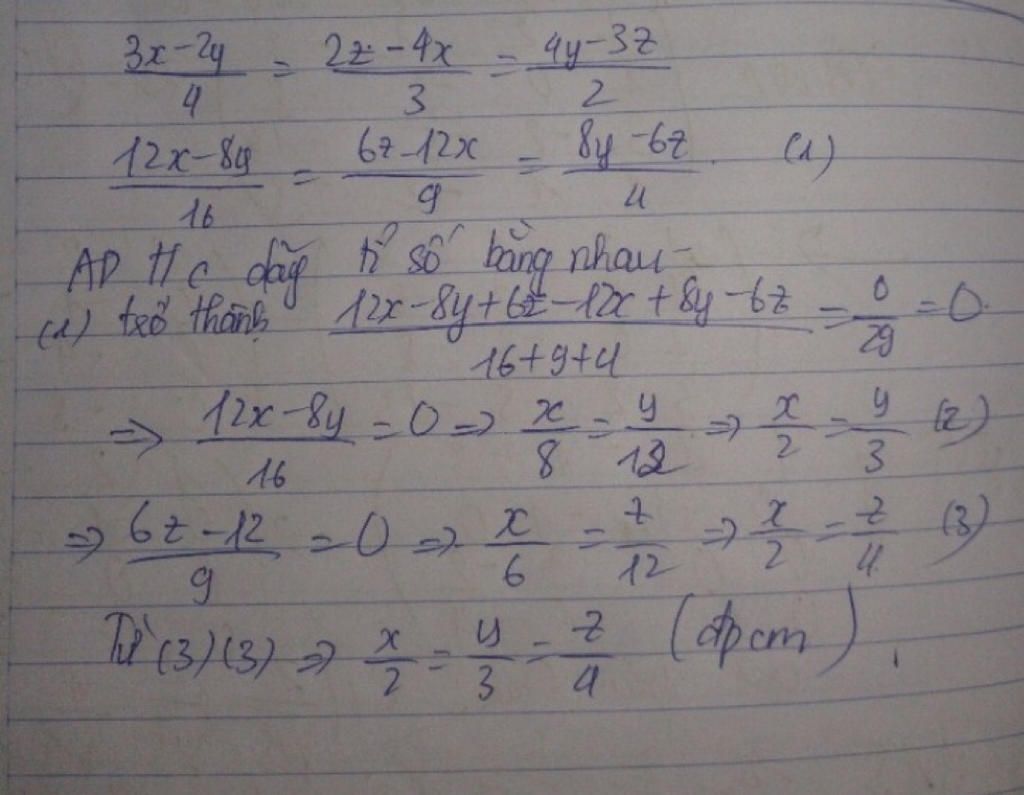 3x-2y/4 = 2z-4x/3 = 4y-3z/2
12x-8y/16 = 6z-12x/9 = 8y-6z/4. (1)
AD t/c dãy tỉ số bằng nhau
(1) trở thành 12x-8y+6z-12x+8y-6z/16+9+4 = 0/29 = 0.
=> 12x-8y/16 = 0 => x/8 = y/12 => x/2 = y/3 (2)
=> 6z-12/9 = 0 => x/6 = z/12 => x/2 = z/4 (3)
Từ (3)(3) => x/2 = y/3 = z/4 (đpcm).